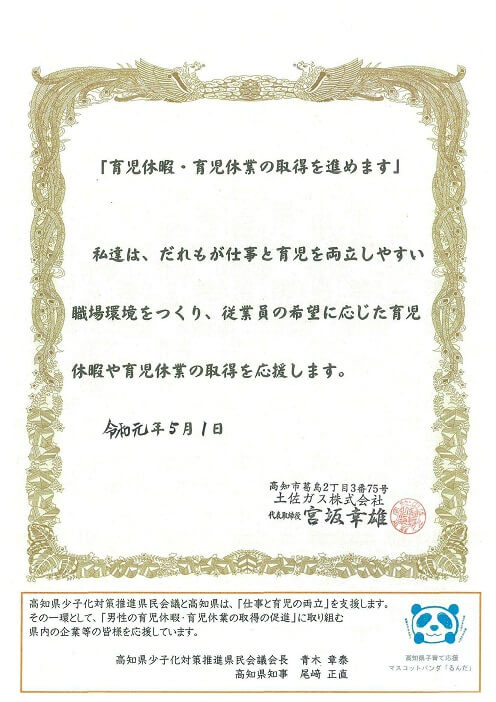 「育児休暇・育児休業の取得を進めます」
私達は、だれもが仕事と育児を両立しやすい
職場環境をつくり、従業員の希望に応じた育児
休暇や育児休業の取得を応援します。
令和元年5月1日
高知市葛島2丁目3番75号
土佐ガス株式会社
代表取締役 宮坂幸雄
高知県少子化対策推進県民会議と高知県は、「仕事と育児の両立」を支援します。
その一環として、「男性の育児休暇・育児休業の取得の促進」に取り組む
県内の企業等の皆様を応援しています。
高知県少子化対策推進県民会議会長 青木 章泰
高知県知事 尾﨑 正直
高知県子育て応援
マスコットパンダ「るんだ」